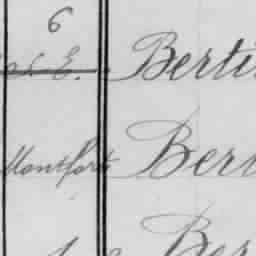 6
E. Berti
Montfort Ber
Ber